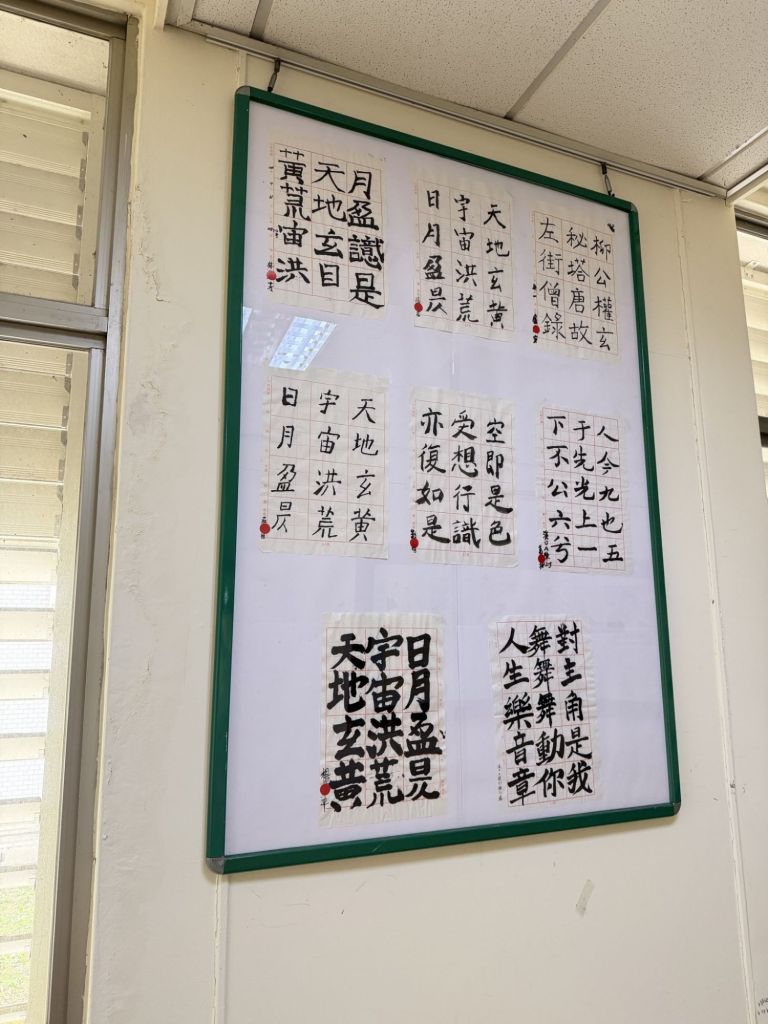 月盈是
天地玄目
黃荒宙洪
天地玄黃
宇宙洪荒
日月盈昃
柳公權玄
秘塔唐故
左街僧錄
天地玄黃
宇宙洪荒
日月盈昃
空即是色
受想行識
亦復如是
人今九也五
于先光上一
下不公六兮
日月盈昃
宇宙洪荒
天地玄黃
對主角是我
舞舞舞動你
人生樂音章